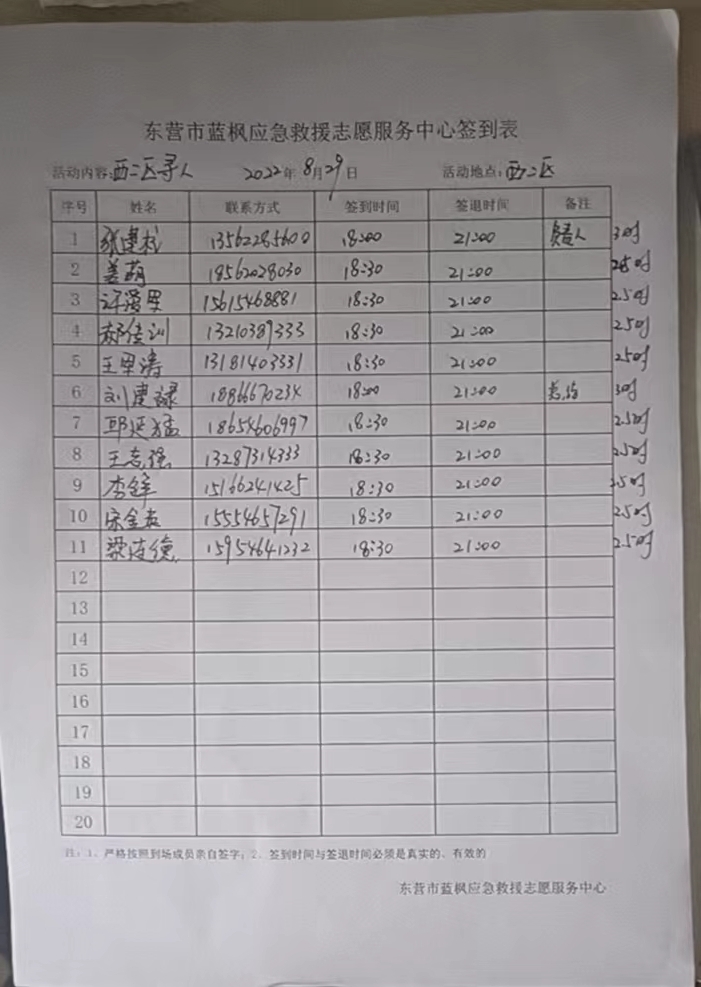 东营市蓝枫应急救援志愿服务中心签到表
活动内容:西二区寻人 2022年8月29日 活动地点:西二区
序号 姓名 联系方式 签到时间 签退时间 备注
1 张建 13562285600 18:00 21:00 负责人 3时
2 姜萌 18562028030 18:30 21:00 2.5时
3 15615468881 18:30 21:00 2.5时
4 郝佳训 13210389333 18:30 21:00 2.5时
5 王军涛 13181403331 18:30 21:00 2.5时
6 刘建禄 1886667023X 18:00 21:00 3时
7 邱廷猛 18654606997 18:30 21:00 2.5时
8 王志强 13287314333 18:30 21:00 2.5时
9 李锋 15166241425 18:30 21:00 2.5时
10 宋金 15554657291 18:30 21:00 2.5时
11 梁 15954641232 18:30 21:00 2.5时
12
13
14
15
16
17
18
19
20
注:1、严格按照到场成员亲自签字;2、签到时间与签退时间必须是真实的、有效的
东营市蓝枫应急救援志愿服务中心